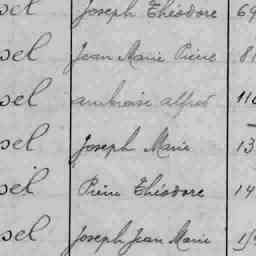 sel Joseph Théodore 69
sel Jean Marie Pierre 81
sel ambroise alfred 116
sel Joseph Marie 13
sel Pierre Théodore 14
sel Joseph Jean Marie